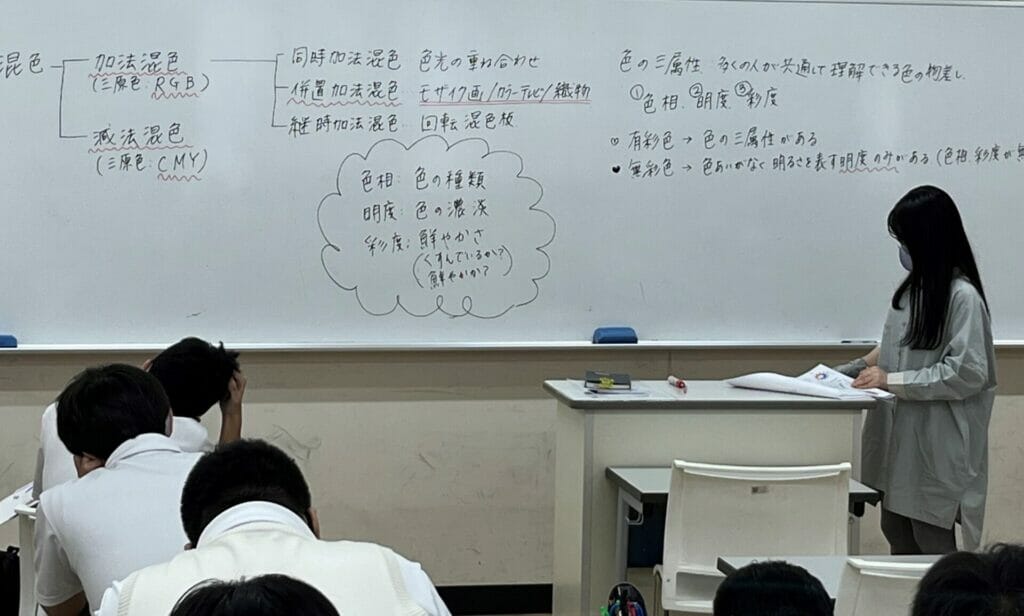 混色
加法混色
(三原色:RGB)
減法混色
(三原色:CMY)
同時加法混色 色光の重ね合わせ
併置加法混色… モザイク画/カラーテレビ/織物
継時加法混色… 回転混色板
色相: 色の種類
明度: 色の濃淡
彩度: 鮮やかさ
(くすんでいるか?
鮮やかか?)
色の三属性 多くの人が共通して理解できる色の物差し
①色相、②明度、③彩度
有彩色 → 色の三属性がある
無彩色 → 色あいがなく 明るさを表す明度のみがある (色相、彩度が無